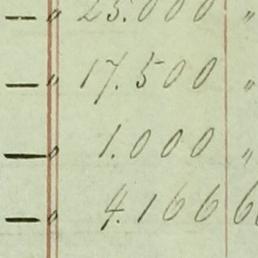 — " 25.000 "
— " 17.500 "
— " 1.000 "
— " 4.166 6